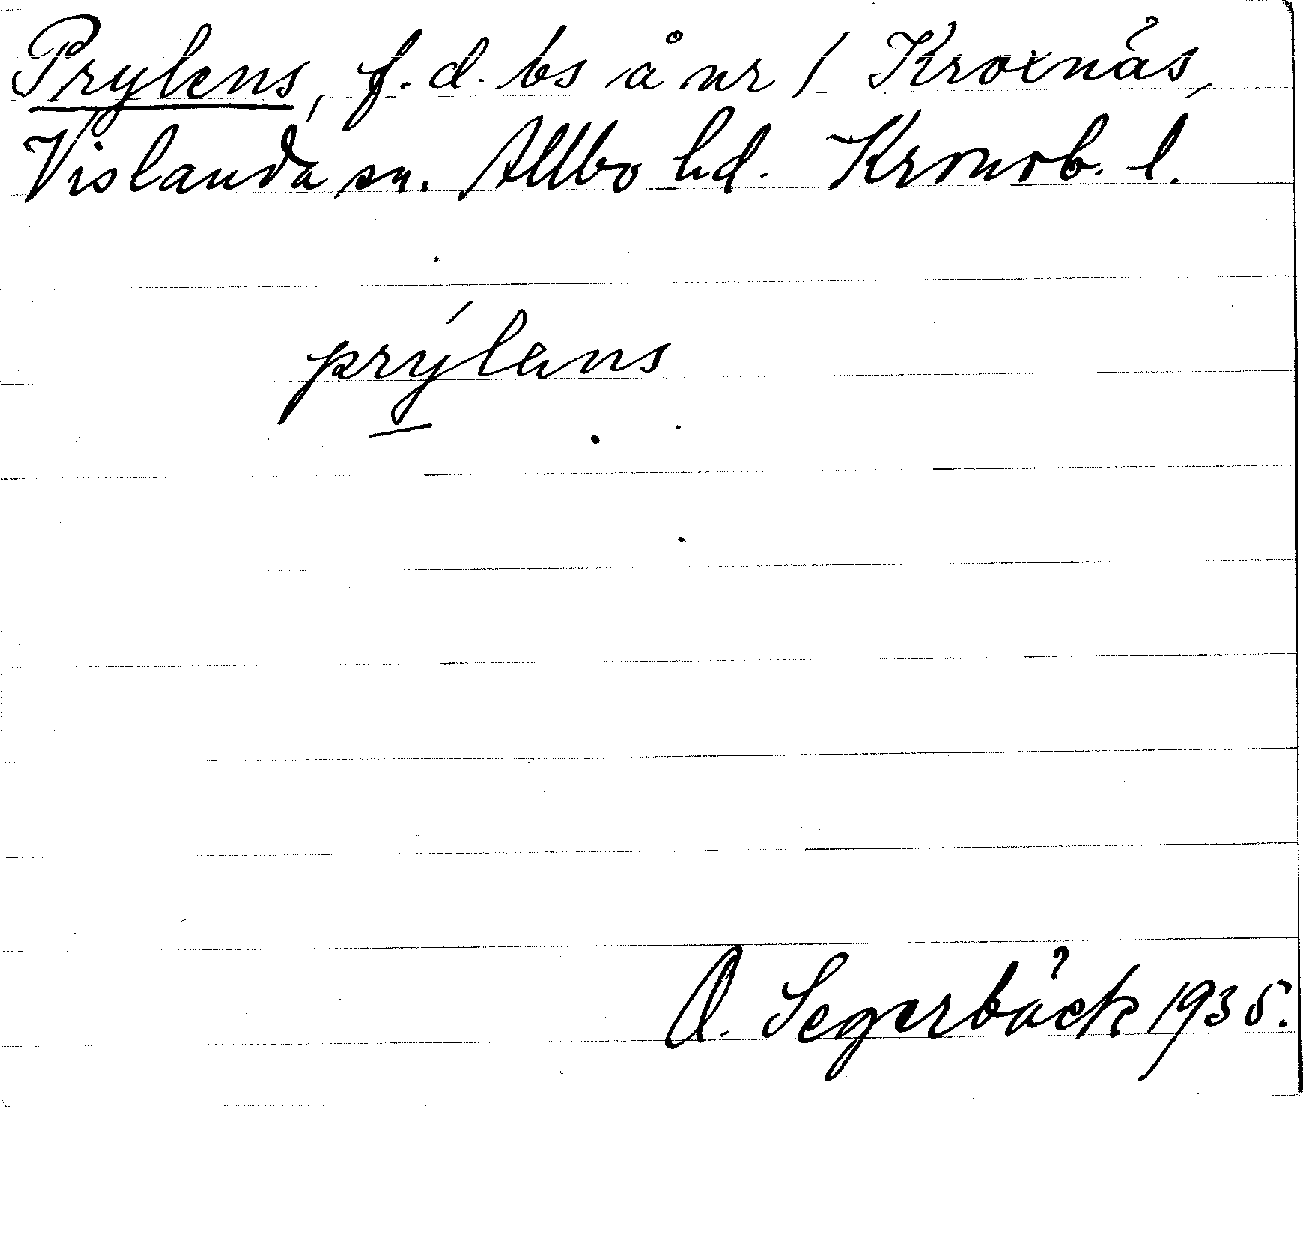 Prylens, f.d. bs å nr 1 Kroxnäs,
Vislanda sn. Allbo hd. Kronob. l.
prýlens
O. Segerbäck 1935.